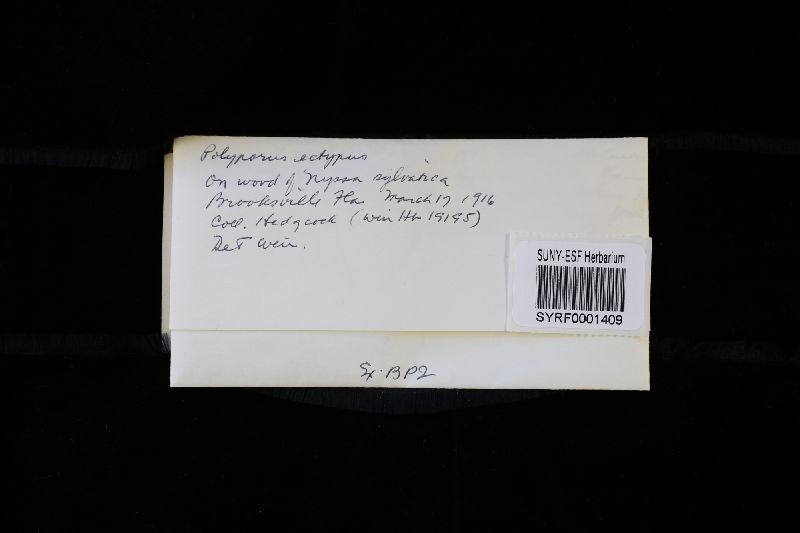 Polyporus ectypus
On wood of Nyssa sylvatica
Brooksville Fla March 17 1916
Coll. Hedgcock (Weir Hb 19195)
Det Weir.
SUNY-ESF Herbarium
SYRF0001409
Ex. BPI